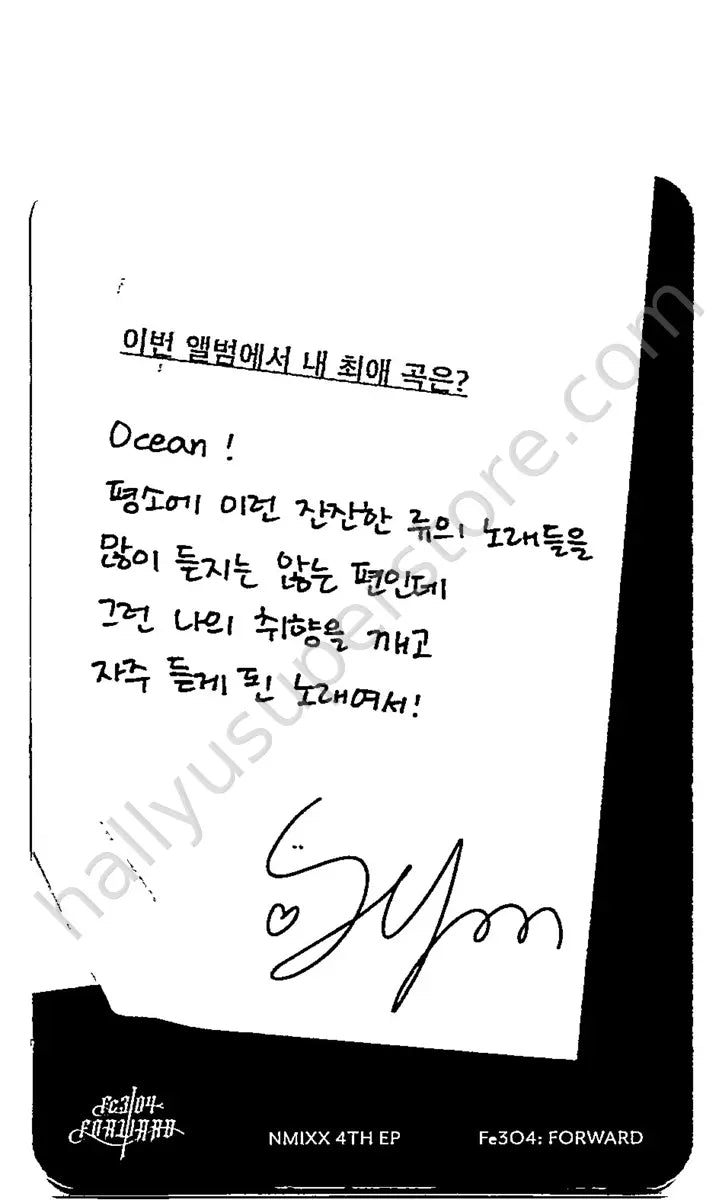 이번 앨범에서 내 최애 곡은?
Ocean !
평소에 이런 잔잔한 류의 노래들을
많이 듣지는 않는 편인데
그런 나의 취향을 깨고
자주 듣게 된 노래여서!
hallyusuperstore.com
Fe3O4
FORWARD
NMIXX 4TH EP
Fe3O4: FORWARD